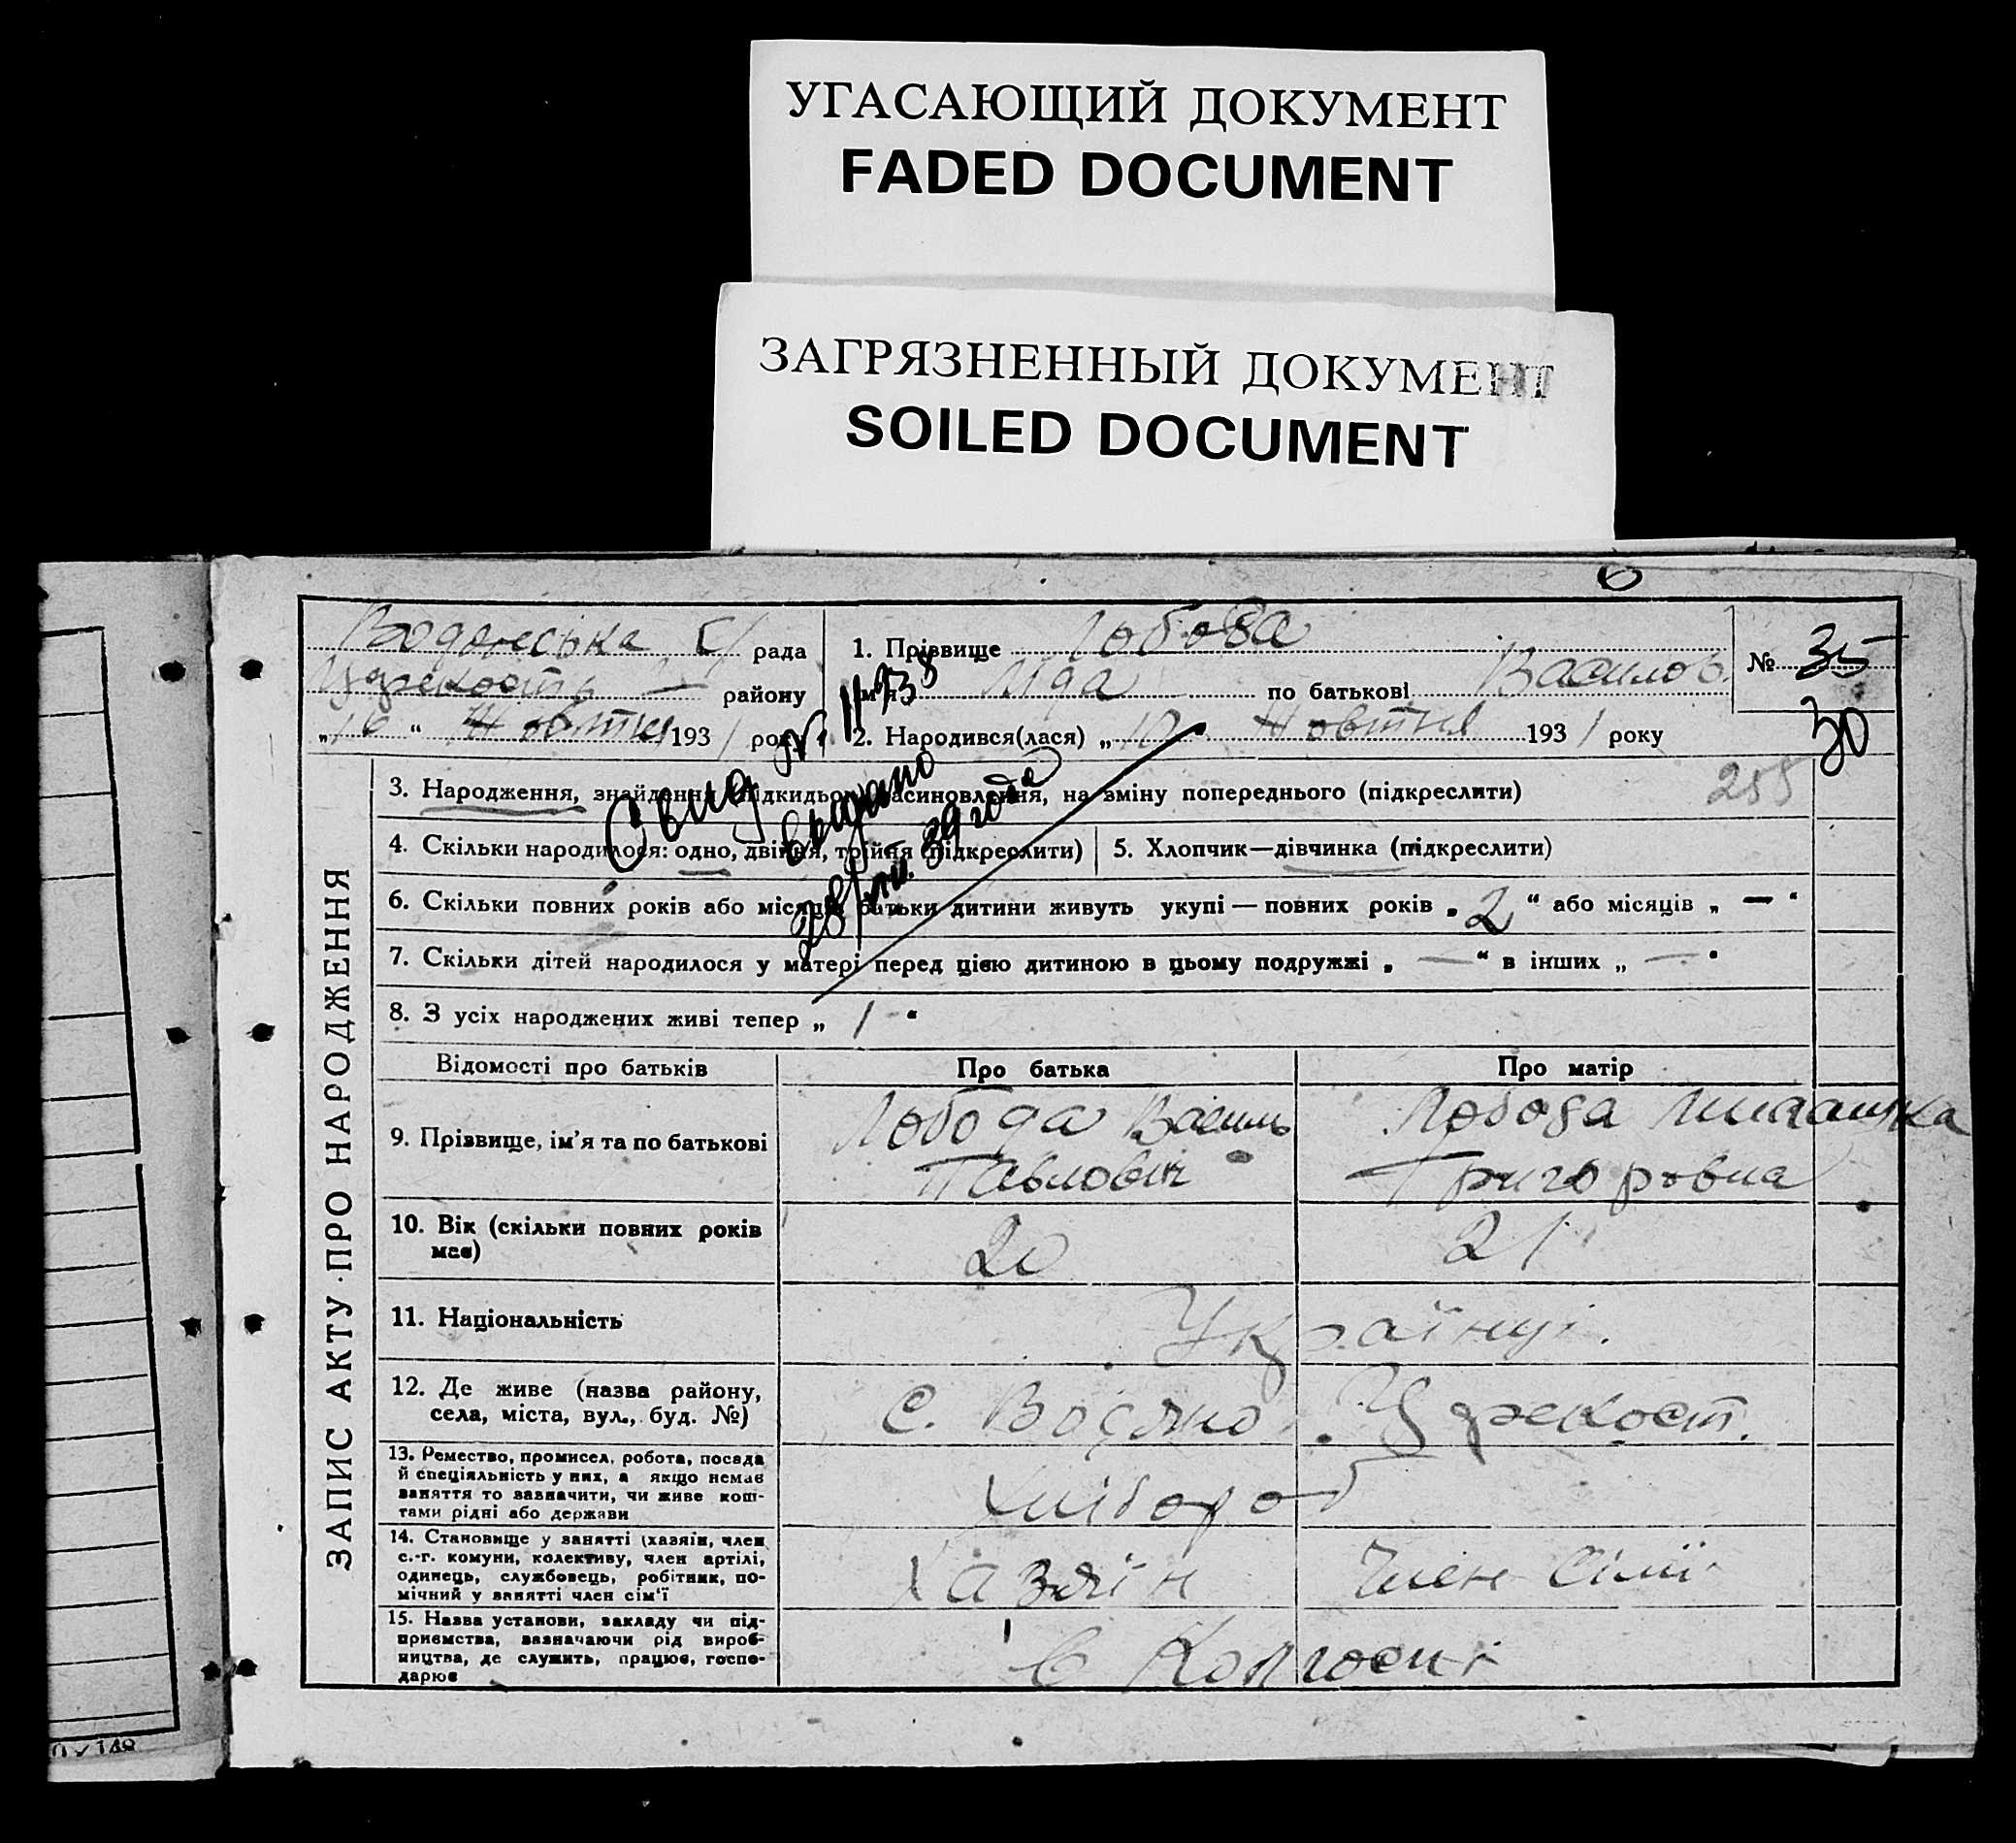 УГАСАЮЩИЙ ДОКУМЕНТ
FADED DOCUMENT
ЗАГРЯЗНЕННЫЙ ДОКУМЕНТ
SOILED DOCUMENT
6
Водянська С/ рада
району
„16“ Жовтня 1931 року
1. Прізвище Лобода
ім'я Ліда по батькові Василов.
2. Народився(лася) „ Жовтня 1931 року
№ 35
30
255
Свид № 11938
выдано
28/ 39 года
ЗАПИС АКТУ ПРО НАРОДЖЕННЯ
3. Народження, знайдення (підкидьок), всиновлення, на зміну попереднього (підкреслити)
4. Скільки народилося: одно, двійня, трійня (підкреслити)
5. Хлопчик—дівчинка (підкреслити)
6. Скільки повних років або місяців батьки дитини живуть укупі — повних років „2“ або місяців „—“
7. Скільки дітей народилося у матері перед цією дитиною в цьому подружжі „—“ в інших „—“
8. З усіх народжених живі тепер „1“
Відомості про батьків Про батька Про матір
9. Прізвище, ім'я та по батькові
Лобода Василь
Павлович
Лобода
Григоровна
10. Вік (скільки повних років
має)
20
21
11. Національність
Українці.
12. Де живе (назва району,
села, міста, вул., буд. №)
с. Водяно
13. Ремество, промисел, робота, посада
й спеціяльність у них, а якщо немає
заняття то зазначити, чи живе кош-
тами рідні або держави
Хлібороб
14. Становище у занятті (хазяїн, член
с.-г. комуни, колективу, член артілі,
одинець, службовець, робітник, по-
мічний у занятті член сім'ї
Хазяїн
Член сімї
15. Назва установи, закладу чи під-
приємства, зазначаючи рід вироб-
ництва, де служить, працює, госпо-
дарює
в Колгоспі